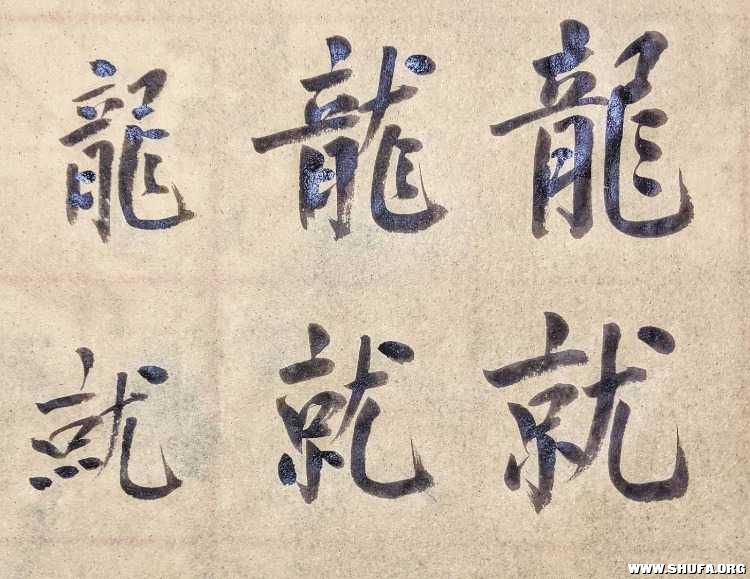 龍 龍 龍
就 就 就
WWW.SHUFA.ORG